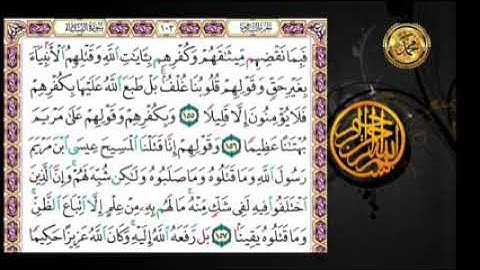 الجزء السادس ١٠٣ سورة النساء
فَبِمَا نَقْضِهِم مِّيثَاقَهُمْ وَكُفْرِهِم بِـَٔايَاتِ ٱللَّهِ وَقَتْلِهِمُ ٱلْأَنۢبِيَآءَ
بِغَيْرِ حَقٍّ وَقَوْلِهِمْ قُلُوبُنَا غُلْفٌۢ بَلْ طَبَعَ ٱللَّهُ عَلَيْهَا بِكُفْرِهِمْ
فَلَا يُؤْمِنُونَ إِلَّا قَلِيلًا ١٥٥ وَبِكُفْرِهِمْ وَقَوْلِهِمْ عَلَىٰ مَرْيَمَ
بُهْتَٰنًا عَظِيمًا ١٥٦ وَقَوْلِهِمْ إِنَّا قَتَلْنَا ٱلْمَسِيحَ عِيسَى ٱبْنَ مَرْيَمَ
رَسُولَ ٱللَّهِ وَمَا قَتَلُوهُ وَمَا صَلَبُوهُ وَلَٰكِن شُبِّهَ لَهُمْ ۚ وَإِنَّ ٱلَّذِينَ
ٱخْتَلَفُوا۟ فِيهِ لَفِى شَكٍّ مِّنْهُ ۚ مَا لَهُم بِهِۦ مِنْ عِلْمٍ إِلَّا ٱتِّبَاعَ ٱلظَّنِّ ۚ
وَمَا قَتَلُوهُ يَقِينًۢا ١٥٧ بَل رَّفَعَهُ ٱللَّهُ إِلَيْهِ ۚ وَكَانَ ٱللَّهُ عَزِيزًا حَكِيمًا
محمد
بسم الله الرحمن الرحيم